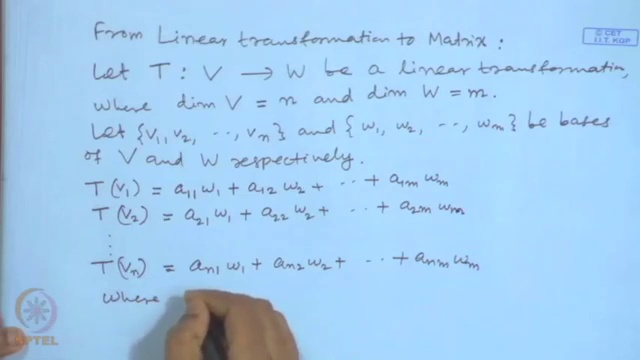 From Linear transformation to Matrix :
© CET
I.I.T. KGP
Let T : V → W be a linear transformation,
where dim V = n and dim W = m.
Let {v₁, v₂, ‥, vₙ} and {w₁, w₂, ‥, wₘ} be bases
of V and W respectively.
T(v₁) = a₁₁w₁ + a₁₂w₂ + ‥ + a₁ₘwₘ
T(v₂) = a₂₁w₁ + a₂₂w₂ + ‥ + a₂ₘwₘ
⋮
T(vₙ) = aₙ₁w₁ + aₙ₂w₂ + ‥ + aₙₘwₘ
where
NPTEL